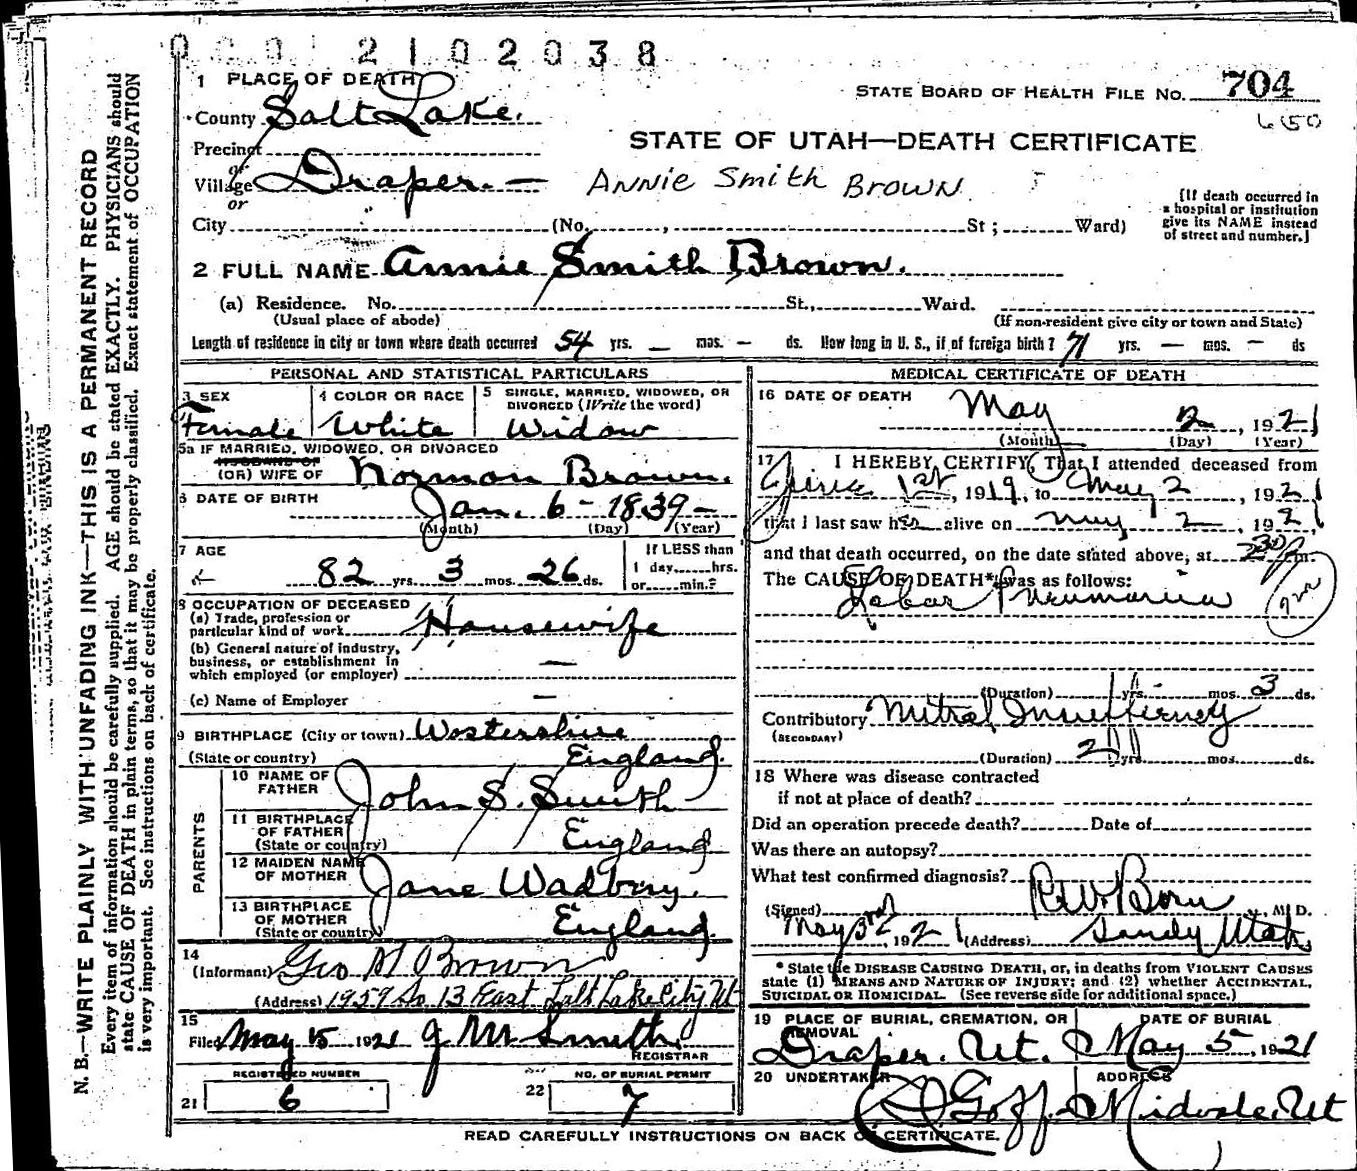 000 2102038
1 PLACE OF DEATH
STATE BOARD OF HEALTH FILE NO. 704
County Salt Lake.
650
Precinct
STATE OF UTAH—DEATH CERTIFICATE
or
Village Draper. —
Annie Smith Brown
or
[If death occurred in
a hospital or institution
give its NAME instead
of street and number.]
City (No. , St ; Ward)
2 FULL NAME Annie Smith Brown.
(a) Residence. No. St., Ward.
(Usual place of abode) (If non-resident give city or town and State)
Length of residence in city or town where death occurred 54 yrs. — mos. — ds. How long in U. S., if of foreign birth? 71 yrs. — mos. — ds
PERSONAL AND STATISTICAL PARTICULARS
3 SEX
Female
4 COLOR OR RACE
White
5 SINGLE, MARRIED, WIDOWED, OR
DIVORCED (Write the word)
Widow
5a IF MARRIED, WIDOWED, OR DIVORCED
HUSBAND OF
(OR) WIFE OF Norman Brown.
6 DATE OF BIRTH Jan. 6 - 1839 -
(Month) (Day) (Year)
7 AGE
82 yrs. 3 mos. 26 ds.
If LESS than
1 day, hrs.
or min.?
8 OCCUPATION OF DECEASED
(a) Trade, profession or
particular kind of work Housewife
(b) General nature of industry,
business, or establishment in
which employed (or employer) —
(c) Name of Employer —
9 BIRTHPLACE (City or town) Wostershire
(State or country) England.
PARENTS
10 NAME OF
FATHER John S. Smith
11 BIRTHPLACE
OF FATHER
(State or country) England
12 MAIDEN NAME
OF MOTHER Jane Wadbury.
13 BIRTHPLACE
OF MOTHER
(State or country) England.
14
(Informant) Geo M Brown
(Address) 1959 So 13 East Salt Lake City Ut
15
Filed May 15 1921 J M Smith.
REGISTRAR
REGISTERED NUMBER
21 6
NO. OF BURIAL PERMIT
22 7
MEDICAL CERTIFICATE OF DEATH
16 DATE OF DEATH May 2, 1921
(Month) (Day) (Year)
17 I HEREBY CERTIFY, That I attended deceased from
June 1st, 1919, to May 2, 1921
that I last saw her alive on May 2, 1921,
and that death occurred, on the date stated above, at 230 P.m.
The CAUSE OF DEATH* was as follows:
Lobar Pneumonia
(Duration) yrs. mos. 3 ds.
Contributory Mitral Insufficiency
(SECONDARY)
(Duration) 2 yrs. mos. ds.
18 Where was disease contracted
if not at place of death?
Did an operation precede death? Date of
Was there an autopsy?
What test confirmed diagnosis?
(Signed) R.W. Born, M. D.
May 3rd, 1921 (Address) Sandy Utah
* State the DISEASE CAUSING DEATH, or, in deaths from VIOLENT CAUSES
state (1) MEANS AND NATURE OF INJURY; and (2) whether ACCIDENTAL,
SUICIDAL OR HOMICIDAL. (See reverse side for additional space.)
19 PLACE OF BURIAL, CREMATION, OR
REMOVAL
Draper. Ut.
DATE OF BURIAL
May 5, 1921
20 UNDERTAKER
Goff.
ADDRESS
Midvale, Ut
READ CAREFULLY INSTRUCTIONS ON BACK OF CERTIFICATE.
N. B.—WRITE PLAINLY WITH UNFADING INK—THIS IS A PERMANENT RECORD
Every item of information should be carefully supplied. AGE should be stated EXACTLY. PHYSICIANS should
state CAUSE OF DEATH in plain terms, so that it may be properly classified. Exact statement of OCCUPATION
is very important. See instructions on back of certificate.